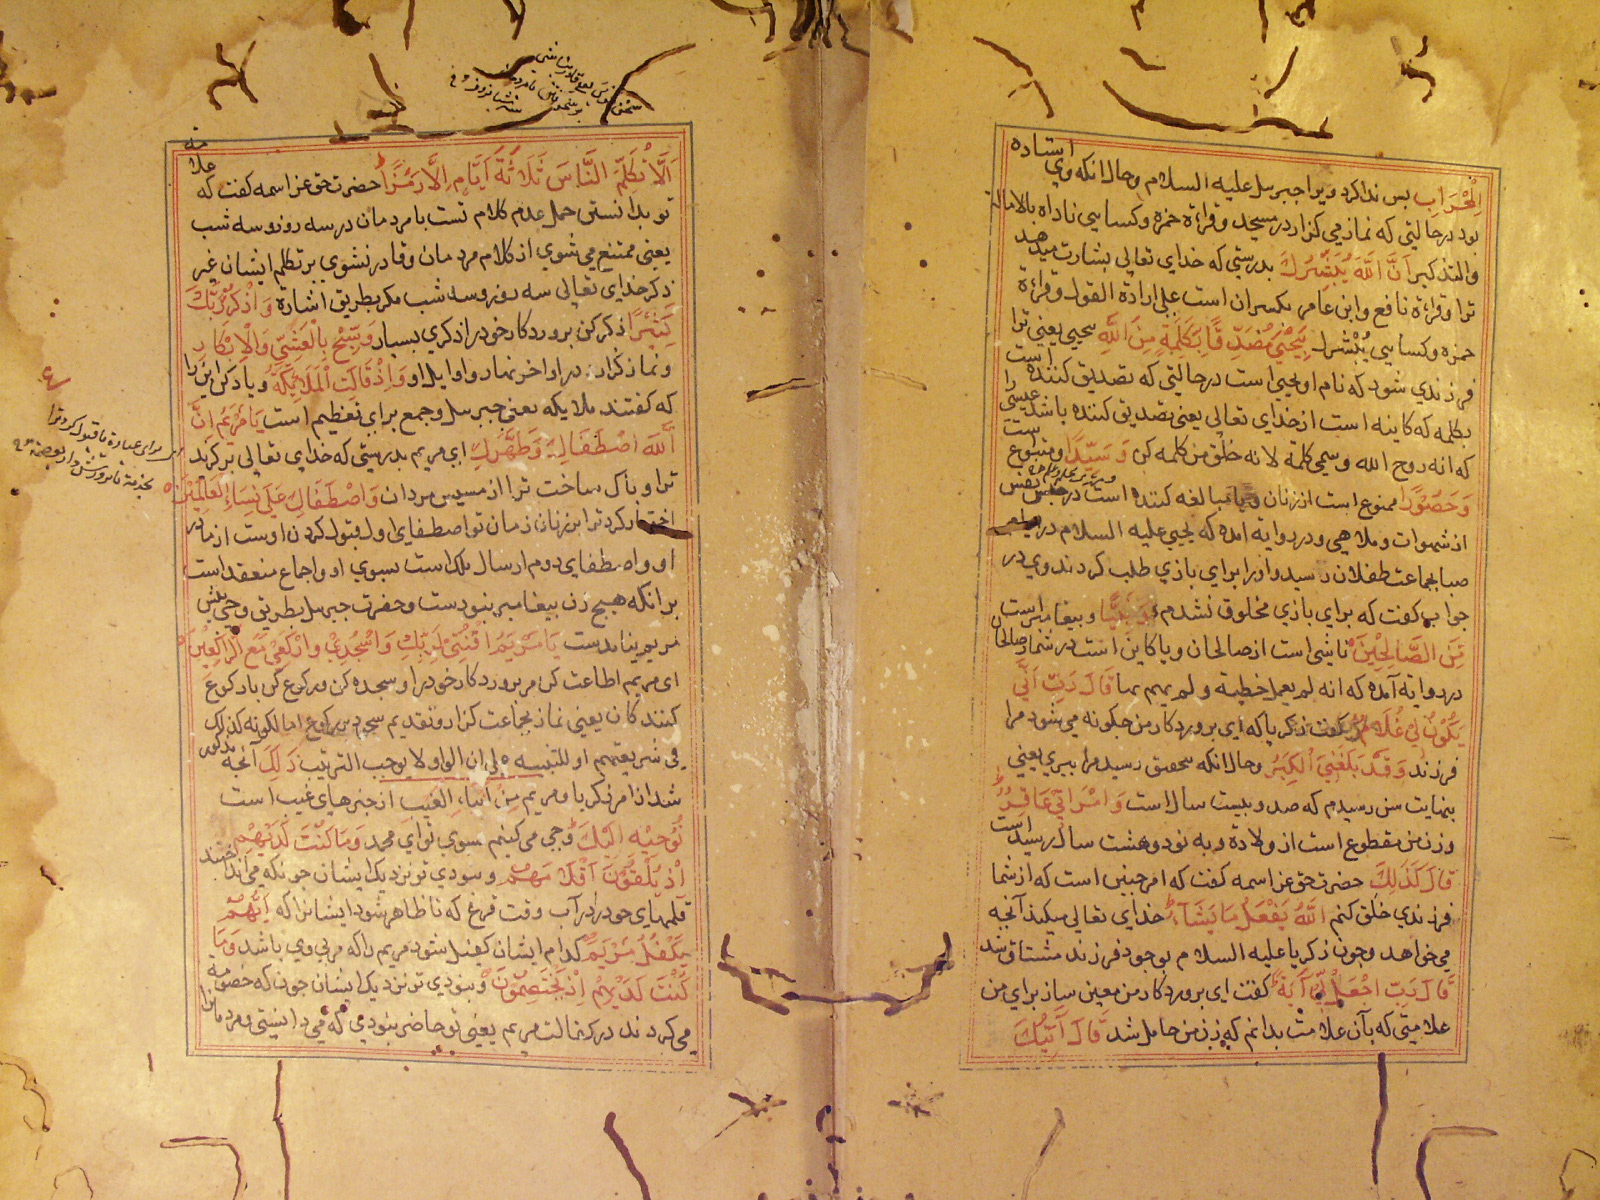 استاده
الْمِحْرَابِ پس ندا کرد ویرا جبریل علیه السلام وحال انکه وی
بود در حالتی که نماز می کزارد در مسجد وقراءة حمزه وکسایی ناداه بالاماله
والتذکیر اَنَّ اللَّهَ يُبَشِّرُكَ بدرستی که خدای تعالی بشارت میدهد
ترا وقراءة نافع وابن عامر بکسر ان است علی ارادة القول وقراءة
حمزه وکسایی یبشرك بِيَحْيٰى مُصَدِّقًا بِكَلِمَةٍ مِنَ اللَّهِ یحیی یعنی ترا
فرزندی شود که نام او یحیی است در حالتی که تصدیق کننده است
بکلمه که کاینه است از خدای تعالی یعنی تصدیق کننده باشد عیسی را
که انه روح الله وسمی کلمة لانه خلق من کلمه کن وَسَيِّدًا ومتبوع است
وَحَصُوْرًا ممنوع است از زنان ویا مبالغه کننده است در حبس نفس
از شهوات وملاهی ودر روایة امده که یحیی علیه السلام در
صبا بجماعت طفلان رسید واورا برای بازی طلب کردند وی در
جواب کفت که برای بازی مخلوق نشدم وَنَبِيًّا وپیغامبر است
مِنَ الصَّالِحِيْنَ ناشی است از صالحان ویا کاین است در شمار صالحان
در روایة آمده که انه لم یعمل خطیة ولم یهم بها قَالَ رَبِّ اَنّٰى
يَكُوْنُ لِيْ غُلَامٌ کفت زکریا که ای پروردکار من چکونه می شود مرا
فرزند وَقَدْ بَلَغَنِيَ الْكِبَرُ وحال انکه بتحقیق رسید مرا پیری یعنی
بنهایت سن رسیدم که صد وبیست سال است وَامْرَاَتِيْ عَاقِرٌ
وزن من مقطوع است از ولادة وبه نود وهشت سال رسیده است
قَالَ كَذٰلِكَ حضرت حق عز اسمه کفت که امر چنین است که از شما
فرزندی خلق کنم اللّٰهُ يَفْعَلُ مَا يَشَآءُ خدای تعالی میکند آنچه
می خواهد وچون زکریا علیه السلام بوجود فرزند مشتاق شد
قَالَ رَبِّ اجْعَلْ لِيْ آيَةً کفت ای پروردکار من معین ساز برای من
علامتی که بآن علامت بدانم که زن من حامل شد قَالَ آيَتُكَ
اَلَّا تُكَلِّمَ النَّاسَ ثَلَاثَةَ اَيَّامٍ اِلَّا رَمْزًا حضرت حق عز اسمه کفت که علامة
تو بدانستن حمل عدم کلام تست با مردمان در سه روز وسه شب
یعنی ممتنع می شوی از کلام مردمان وقادر نشوی بر تکلم ایشان غیر
ذکر خدای تعالی سه روز وسه شب مکر بطریق اشارة وَاذْكُرْ رَبَّكَ
كَثِيْرًا ذکر کن پروردکار خود را ذکری بسیار وَسَبِّحْ بِالْعَشِيِّ وَالْاِبْكَارِ
ونماز کزار در اواخر نهار واوایل او وَاِذْ قَالَتِ الْمَلَائِكَةُ ویاد کن این را
که کفتند ملایکه یعنی جبریل وجمع برای تعظیم است يَا مَرْيَمُ اِنَّ
اللّٰهَ اصْطَفٰىكِ وَطَهَّرَكِ ای مریم بدرستی که خدای تعالی بر کزید
ترا وپاک ساخت ترا از مسیس مردان وَاصْطَفٰىكِ عَلٰى نِسَاءِ الْعَالَمِيْنَ
اختیار کرد ترا بر زنان زمان تو اصطفای اول قبول کردن اوست از مادر
او واصطفای دوم ارسال ملک است بسوی او واجماع منعقد است
بر انکه هیچ زن پیغامبر نبودست وحضرت جبریل بطریق وحی پیش
مریم نیامدست يَا مَرْيَمُ اقْنُتِيْ لِرَبِّكِ وَاسْجُدِيْ وَارْكَعِيْ مَعَ الرَّاكِعِيْنَ
ای مریم اطاعت کن مر پروردکار خود را وسجده کن ورکوع کن با رکوع
کنندکان یعنی نماز بجماعت کزار وتقدیم سجود بر رکوع اما لکونه کذلک
فی شریعتهم او للتنبیه علی ان الواو لا یوجب الترتیب ذٰلِكَ آنچه مذکور
شد از امر زکریا ومریم مِنْ اَنْبَاءِ الْغَيْبِ از خبرهای غیب است
نُوْحِيْهِ اِلَيْكَ وحی می کنیم سوی تو ای محمد وَمَا كُنْتَ لَدَيْهِمْ
اِذْ يُلْقُوْنَ اَقْلَامَهُمْ ونبودی تو نزدیک ایشان چونکه می انداختند
قلمهای خود را در آب وقت قرعه که تا ظاهر شود ایشانرا که اَيُّهُمْ
يَكْفُلُ مَرْيَمَ کدام ایشان کفیل شود مریم را که مربی وی باشد وَمَا
كُنْتَ لَدَيْهِمْ اِذْ يَخْتَصِمُوْنَ ونبودی تو نزدیک ایشان چون که خصومة
می کردند در کفالت مریم یعنی تو حاضر نبودی که می دانستی ومردمانرا